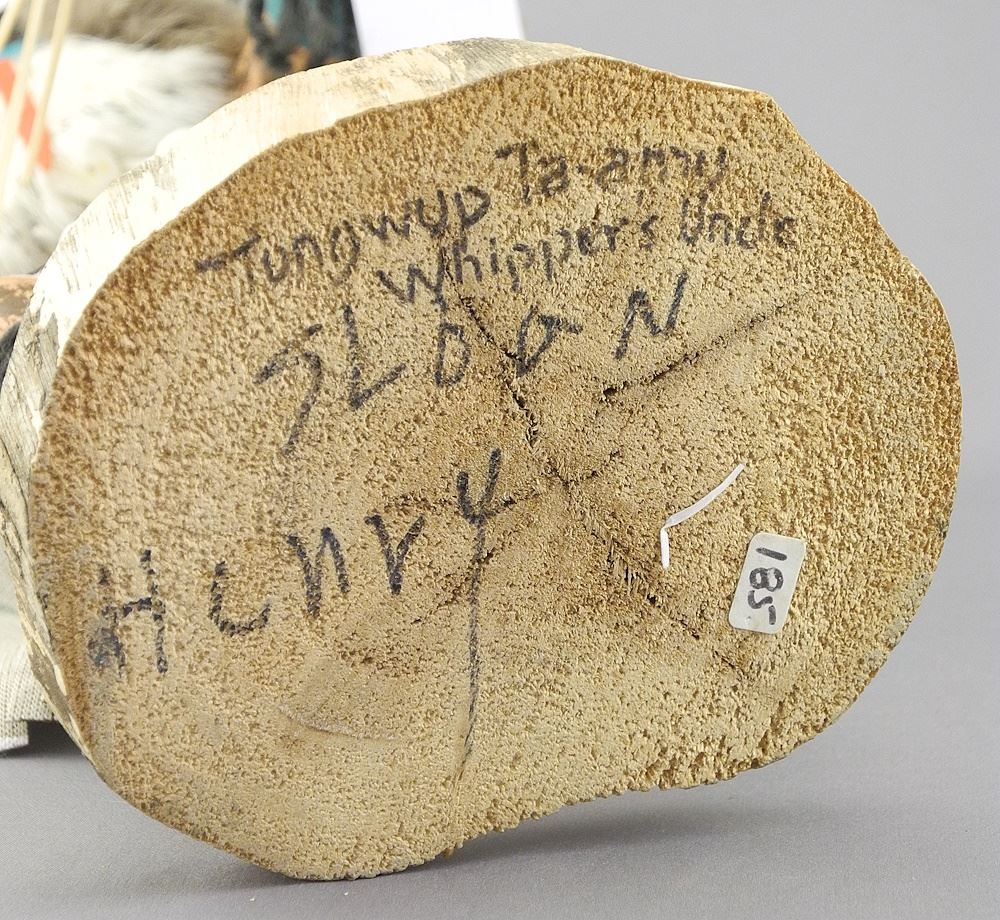 Tungwup Ta-amy
Whipper's Uncle
SLOAN
Henry
185